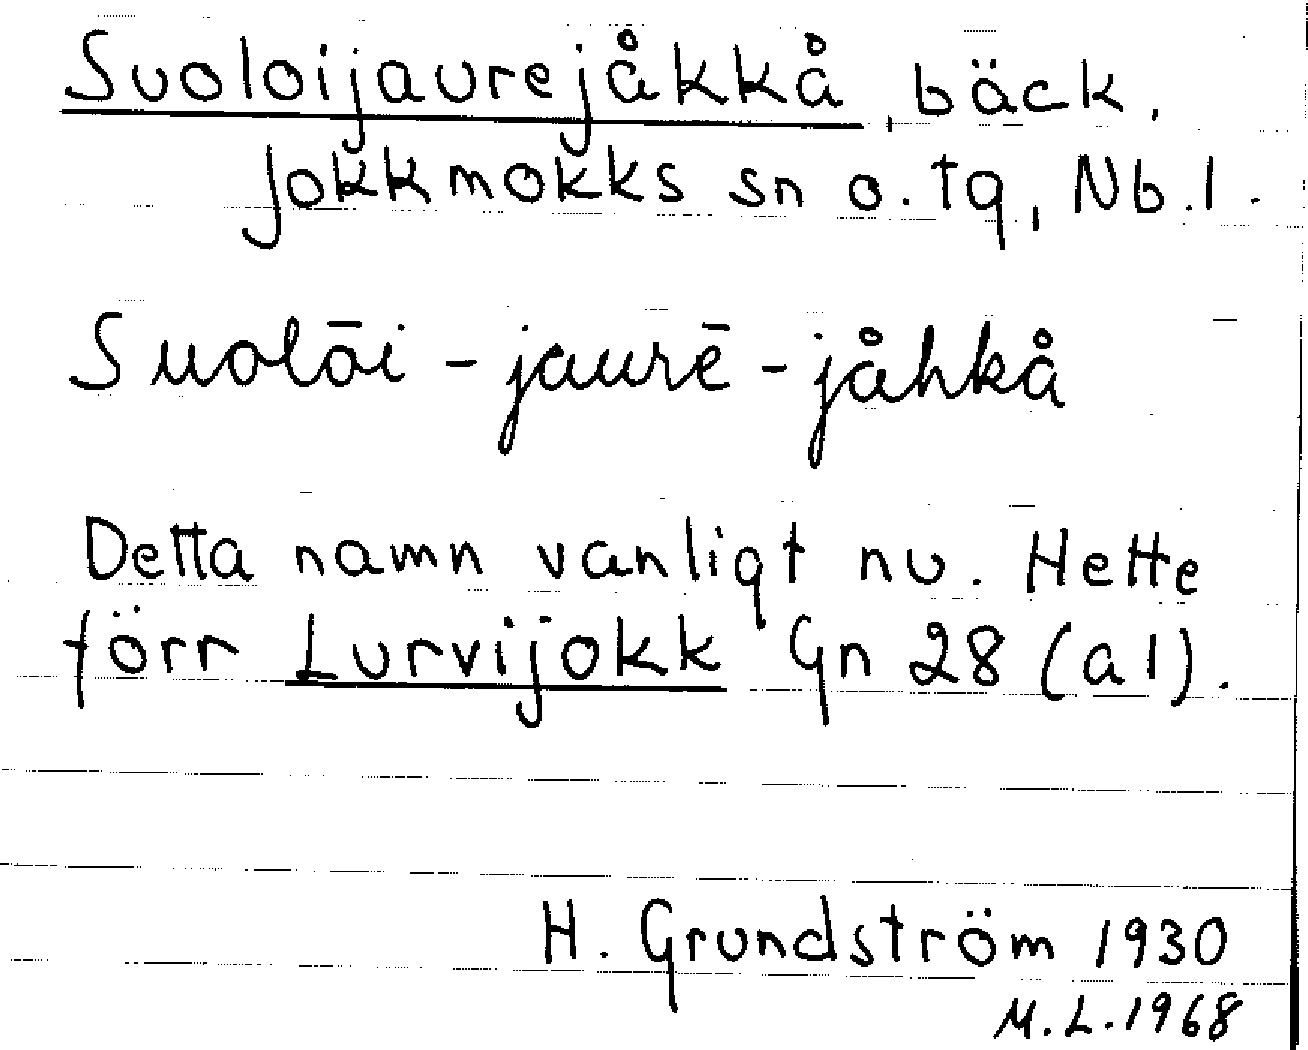 Suoloijaurejåkkå, bäck,
Jokkmokks sn o. tg, Nb. l.
Suolōi - jaurē - jåhkå
Detta namn vanligt nu. Hette
förr Lurvijokk Gn 28 (a l).
H. Grundström 1930
M.L. 1968